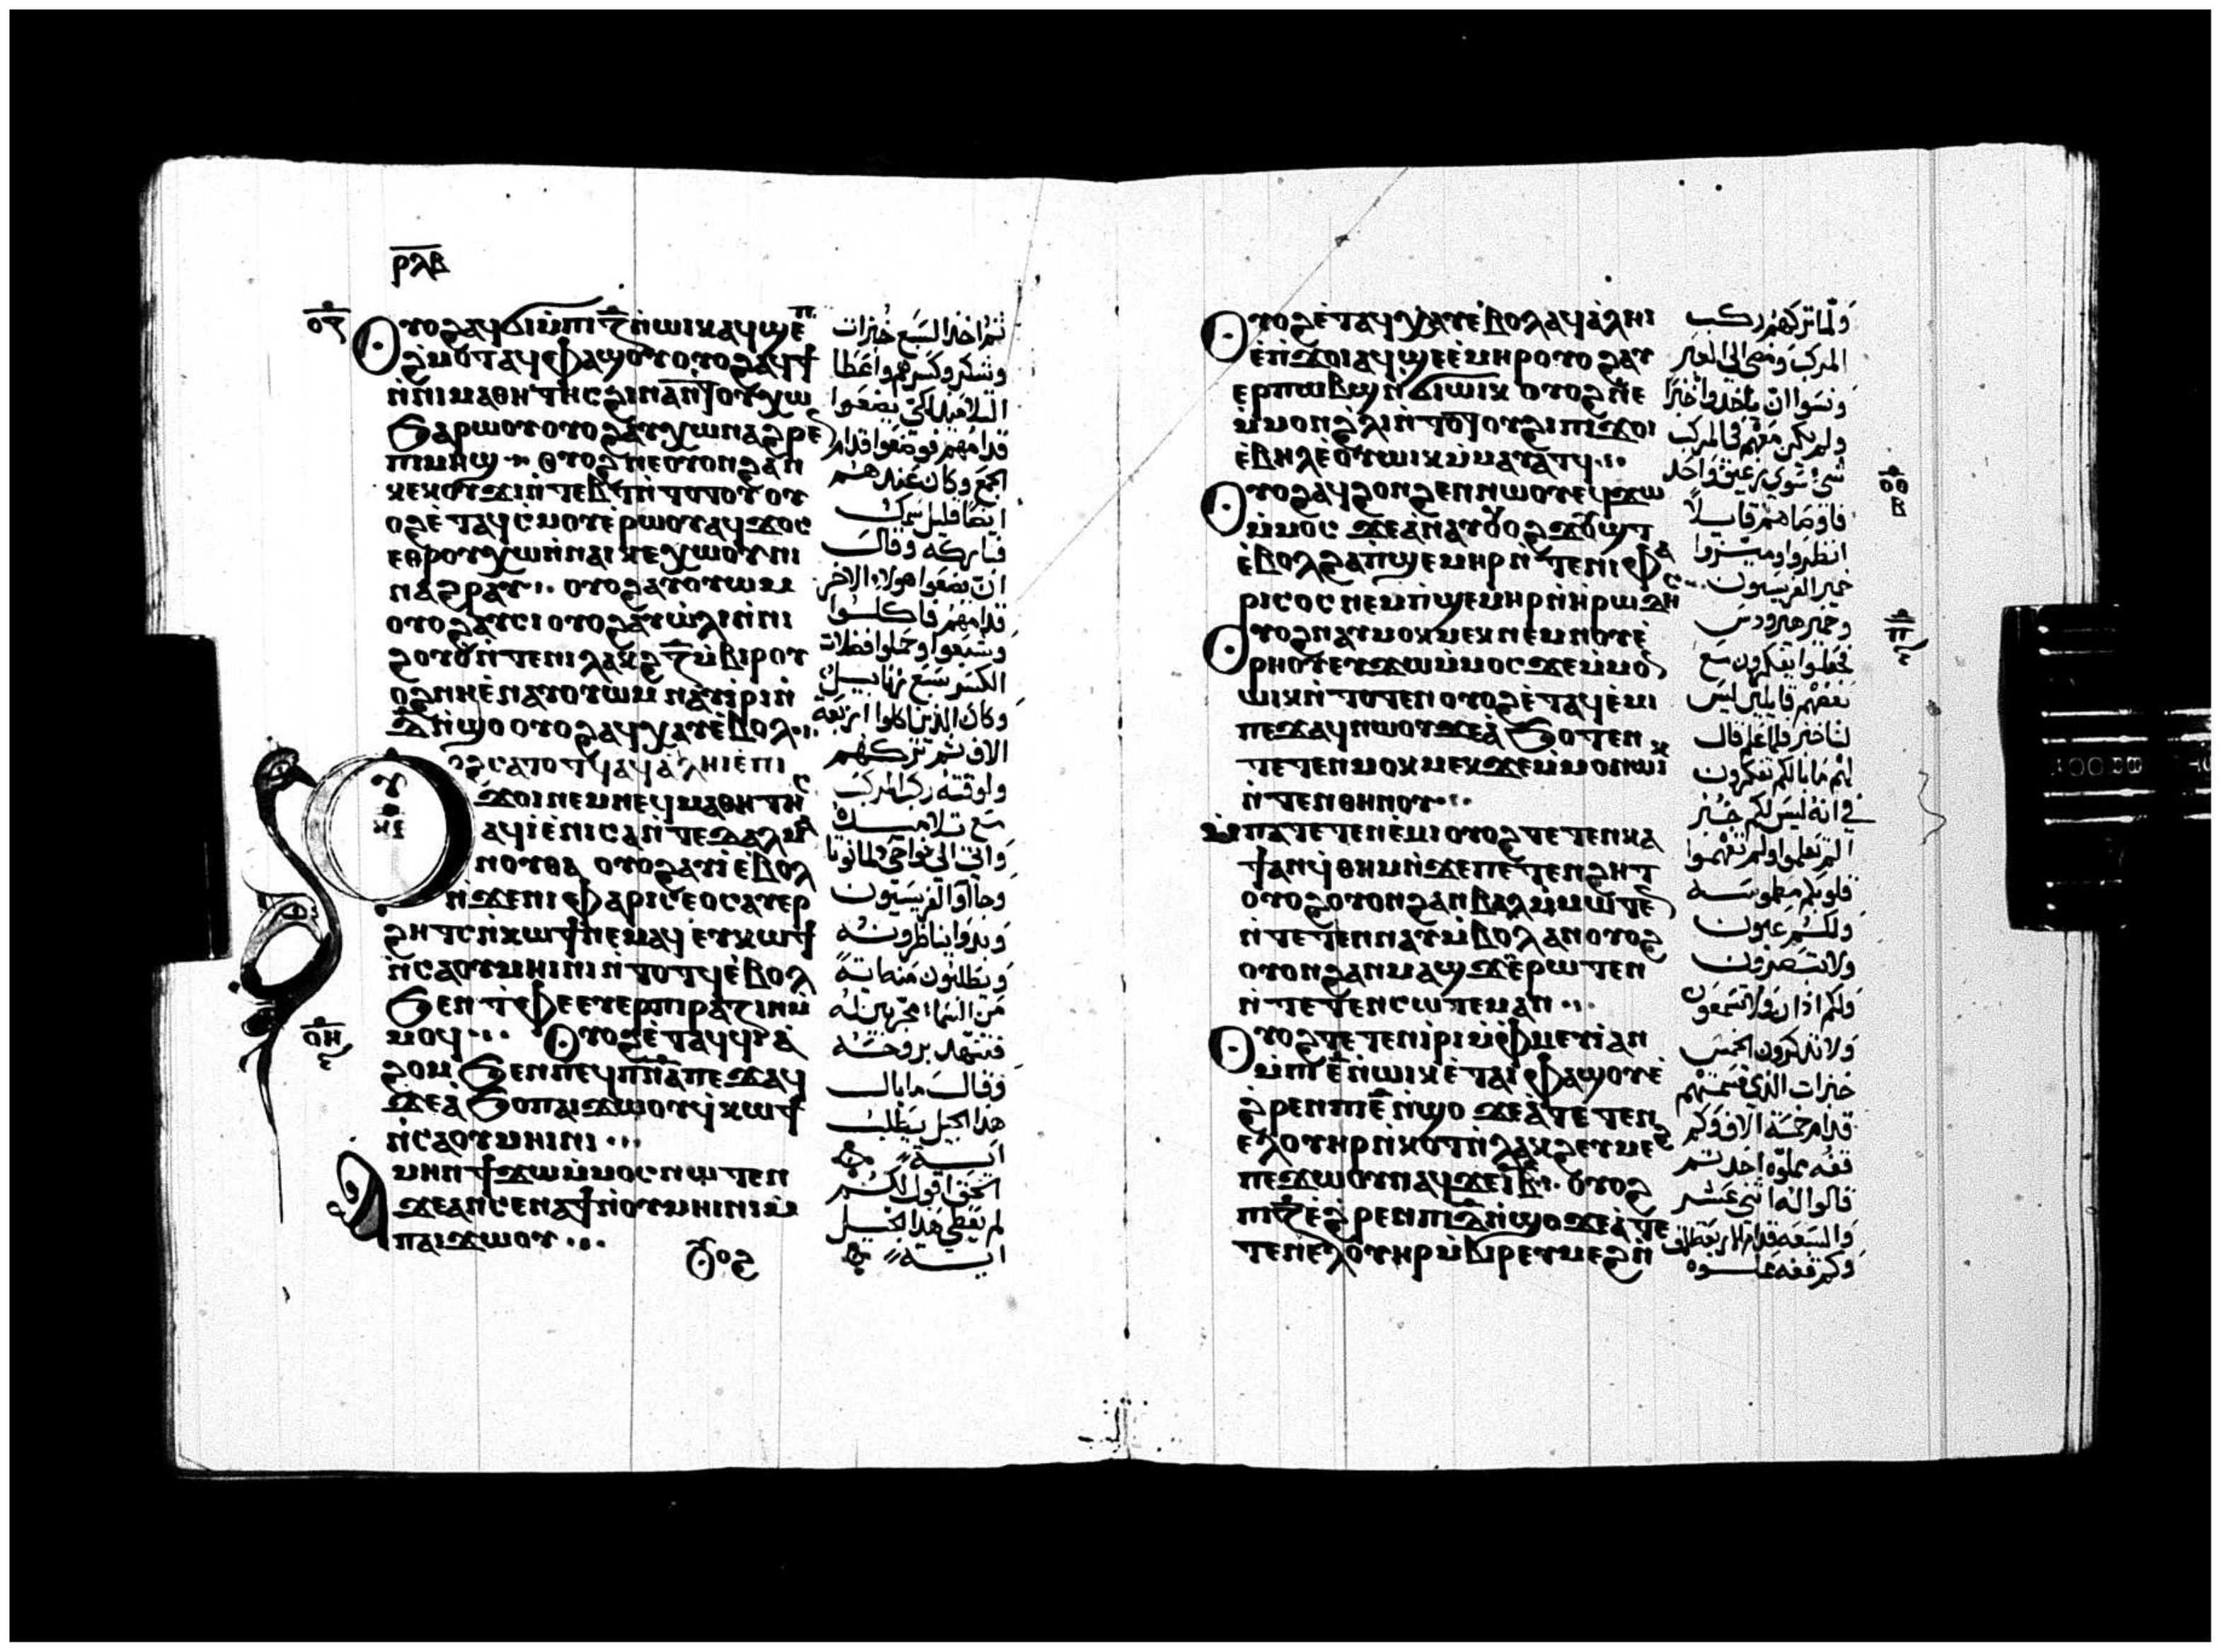 ⲣⲗⲃ
ⲟⲍ
ⲟⲩⲟϩ ⲁϥϭⲓ ⲙ̇ⲡⲓⲍ̅ ⲛ̇ⲱⲓⲕ ⲁϥϣⲉⲡ
ϩ̇ⲙⲟⲧ ⲁϥⲫⲁϣⲟⲩ ⲟⲩⲟϩ ⲁϥϯ
ⲛ̇ⲛⲓⲙⲁⲑⲏⲧⲏⲥ ϩⲓⲛⲁ ⲛ̇ⲧⲟⲩⲭⲱ
ϧⲁⲣⲱⲟⲩ ⲟⲩⲟϩ ⲁⲩⲭⲱ ⲛⲁϩⲣⲉⲛ
ⲡⲓⲙⲏϣ ⲟⲩⲟϩ ⲛⲉ ⲟⲩⲟⲛ ϩⲁⲛ
ⲕⲉⲕⲟⲩϫⲓ ⲛ̇ⲧⲉⲃⲧ ⲛ̇ⲧⲟⲧⲟⲩ ⲟⲩ
ⲟϩ ⲉ̇ⲧⲁϥⲥ̇ⲙⲟⲩ ⲉ̇ⲣⲱⲟⲩ ⲁϥϫⲟⲥ
ⲉⲑⲣⲟⲩⲭⲱ ⲛ̇ⲛⲁⲓ ⲕⲉⲭⲱⲟⲩⲛⲓ
ⲛⲁϩⲣⲁⲩ ⲟⲩⲟϩ ⲁⲩⲟⲩⲱⲙ
ⲟⲩⲟϩ ⲁⲩⲥⲓ ⲟⲩⲟϩ ⲁⲩⲱ̇ⲗⲓ ⲛ̇ⲛⲓ
ϩⲟⲩⲟ̇ ⲛ̇ⲧⲉ ⲛⲓⲗⲁⲕϩ ⲍ̅ ⲙ̇ⲃⲓⲣ ⲟⲩ
ⲟϩ ⲛⲏ ⲉ̇ⲛⲁⲩⲟⲩⲱⲙ ⲛⲁⲩⲓ̇ⲣⲓ ⲛ̇
ⲇ̅ ⲛ̇ϣⲟ ⲟⲩⲟϩ ⲁϥⲭⲁⲩ ⲉ̇ⲃⲟⲗ
ⲟϩ ⲥⲁⲧⲟⲧϥ ⲁϥⲁ̇ⲗⲏⲓ ⲉ̇ⲡⲓ
ϫⲟⲓ ⲛⲉⲙ ⲛⲉϥⲙⲁⲑⲏⲧⲏⲥ
ⲁϥⲓ̇ ⲉ̇ⲛⲓⲥⲁ ⲛ̇ⲧⲉ ⲇⲁⲗⲙⲁ
ⲛⲟⲩⲑⲁ ⲟⲩⲟϩ ⲁⲩⲓ̇ ⲉ̇ⲃⲟⲗ
ⲛ̇ϫⲉ ⲛⲓⲫⲁⲣⲓⲥⲉⲟⲥ ⲁⲩⲉⲣ
ϩⲏⲧⲥ ⲛ̇ⲕⲱϯ ⲛⲉⲙⲁϥ ⲉⲩⲕⲱϯ
ⲛ̇ⲥⲁ ⲟⲩⲙⲏⲓⲛⲓ ⲛ̇ⲧⲟⲧϥ ⲉ̇ⲃⲟⲗ
ϧⲉⲛ ⲧ̇ⲫⲉ ⲉⲩⲉⲣⲡⲓⲣⲁⲍⲓⲛ ⲙ̇
ⲙⲟϥ ⲟⲩⲟϩ ⲉ̇ⲧⲁϥϥⲓⲁ̇
ϩⲟⲙ ϧⲉⲛ ⲡⲉϥⲡ̅ⲛ̅ⲁ̅ ⲡⲉϫⲁϥ
ϫⲉ ⲁ̇ϧⲟ ⲡⲁⲓϫⲱⲟⲩ ϥ̇ⲕⲱϯ
ⲛ̇ⲥⲁ ⲟⲩⲙⲏⲓⲛⲓ
ⲁⲙⲏⲛ ϯϫⲱ ⲙ̇ⲙⲟⲥ ⲛⲱⲧⲉⲛ
ϫⲉ ⲁⲛ ⲥⲉⲛⲁϯ ⲛ̇ⲟⲩⲙⲏⲓⲛⲓ ⲙ̇
ⲡⲁⲓϫⲱⲟⲩ
ⲟⲩⲟϩ
ⲟⲏ
ثم اخذ السبع خبزات
وشكر وكسرهم واعطا
التلاميذ لكي يضعوا
قدامهم فوضعوا قدام
الجمع وكان عندهم
ايضا قليل سمك
فباركه وقال
ان تضعوا هولا الاخر
قدامهم فاكلوا
وشبعوا وحملوا فضلات
الكسر سبع زنابيل
وكان الذين اكلوا اربعة
الاف ثم تركهم
ولوقته ركب المركب
مع تلاميذه
واتى الى نواحي دلمانوتا
وجاوا الفريسيون
وبدوا يناظرونه
ويطلبون منه اية
من السما مجربين له
فتنهد بروحه
وقال ما بال
هذا الجيل يطلب
اية
الحق اقول لكم
لم يعطي هذا الجيل
اية
ⲟⲩⲟϩ ⲉ̇ⲧⲁϥⲭⲁⲩ ⲉ̇ⲃⲟⲗ ⲁϥⲁ̇ⲗⲏⲓ
ⲉ̇ⲡϫⲟⲓ ⲁϥϣⲉ ⲉ̇ⲙⲏⲣ ⲟⲩⲟϩ ⲁⲩ
ⲉⲣⲡⲱⲃϣ ⲛ̇ϭⲓ ⲱⲓⲕ ⲟⲩⲟϩ ⲛⲉ
ⲙ̇ⲙⲟⲛ ϩ̇ⲗⲓ ⲛ̇ⲧⲟⲧⲟⲩ ϩⲓ ⲡⲓϫⲟⲓ
ⲉ̇ⲃⲏⲗ ⲉ̇ⲟⲩⲱⲓⲕ ⲙ̇ⲙⲁⲩⲁⲧϥ
ⲟⲩⲟϩ ⲁϥϩⲟⲛϩⲉⲛ ⲛⲱⲟⲩ ⲉϥϫⲱ
ⲙ̇ⲙⲟⲥ ϫⲉ ⲁ̇ⲛⲁⲩ ⲟⲩⲟϩ ϫⲟⲩϣⲧ
ⲉ̇ⲃⲟⲗ ϩⲁ ⲡ̇ϣⲉⲙⲏⲣ ⲛ̇ⲧⲉ ⲛⲓⲫⲁ
ⲣⲓⲥⲟⲥ ⲛⲉⲙ ⲡ̇ϣⲉⲙⲏⲣ ⲛ̇ⲏⲣⲱⲇⲏⲥ
ⲟⲩⲟϩ ⲛⲁⲩⲙⲟⲕⲙⲉⲕ ⲛⲉⲙ ⲛⲟⲩⲉ̇
ⲣⲏⲟⲩ ⲉⲩϫⲱ ⲙ̇ⲙⲟⲥ ϫⲉ ⲙ̇ⲙⲟⲛ
ⲱⲓⲕ ⲛ̇ⲧⲟⲧⲉⲛ ⲟⲩⲟϩ ⲉ̇ⲧⲁϥⲉ̇ⲙⲓ
ⲡⲉϫⲁϥ ⲛⲱⲟⲩ ϫⲉ ⲁ̇ϧⲟⲧⲉⲛ
ⲧⲉⲧⲉⲛⲙⲟⲕⲙⲉⲕ ϫⲉ ⲙ̇ⲙⲟⲛ ⲱⲓⲕ
ⲛ̇ⲧⲉⲛⲑⲏⲛⲟⲩ
ⲙ̇ⲡⲁⲧⲉⲧⲉⲛⲉ̇ⲙⲓ ⲟⲩⲟϩ ⲧⲉⲧⲉⲛⲕⲁ
ϯ ⲁⲛ ϥ̇ⲑⲏⲙ ⲛ̇ϫⲉ ⲡⲉⲧⲉⲛϩⲏⲧ
ⲟⲩⲟϩ ⲟⲩⲟⲛ ϩⲁⲛⲃⲁⲗ ⲙ̇ⲙⲱⲧⲉⲛ
ⲛ̇ⲧⲉⲧⲉⲛⲛⲁⲩ ⲙ̇ⲃⲟⲗ ⲁⲛ ⲟⲩⲟϩ
ⲟⲩⲟⲛ ϩⲁⲛⲙⲁϣϫ ⲉ̇ⲣⲱⲧⲉⲛ
ⲛ̇ⲧⲉⲧⲉⲛⲥⲱⲧⲉⲙ ⲁⲛ
ⲟⲩⲟϩ ⲧⲉⲧⲉⲛⲓ̇ⲣⲓ ⲙ̇ⲫⲙⲉⲩⲓ̇ ⲁⲛ
ⲙ̇ⲡⲓⲉ̅ ⲛ̇ⲱⲓⲕ ⲉ̇ⲧⲁⲓⲫⲁϣⲟⲩ ⲉ̇
ϩ̇ⲣⲉⲛ ⲡⲓⲉ̅ ⲛ̇ϣⲟ ϫⲉ ⲁ̇ⲧⲉⲧⲉⲛ
ⲉⲗ ⲟⲩⲏⲣ ⲛ̇ⲕⲟⲧ ⲛ̇ⲗⲁⲕϩ ⲉⲩⲙⲉϩ
ⲡⲉϫⲱⲟⲩ ⲛⲁϥ ϫⲉ ⲓ̅ⲃ̅ ⲟⲩⲟϩ
ⲡⲓⲍ̅ ⲉ̇ϩ̇ⲣⲉⲛ ⲡⲓⲇ̅ ⲛ̇ϣⲟ ϫⲉ ⲁ̇ⲧⲉ
ⲧⲉⲛⲉⲗ ⲟⲩⲏⲣ ⲙ̇ⲃⲓⲣ ⲉⲩⲙⲉϩ ⲛ̇
ولما تركهم ركب
المركب ومضى الى العبر
ونسوا ان ياخذوا خبزا
ولم يكن معهم في المركب
شي سوي رغيف واحد
فاوصاهم قايلا
انظروا وميزوا
خمير الفريسيون
وخمير هيرودس
فجعلوا يفكرون مع
بعضهم قايلين ليس
لنا خبز فلما علم قال
لهم ما بالكم تفكرون
في انه ليس لكم خبز
الم تعلموا ولم تفهموا
قلوبكم مطموسة
ولكم عيون
ولا تبصرون
ولكم اذان ولا تسمعون
ولا تذكرون الخمس
خبزات الذي قسمتهم
قدام خمسة الاف وكم
قفه مملوه اخذتم
قالوا له اثني عشر
والسبعه قدام الاربعة الاف
وكم قفه مملوه
ⲟⲑ
ⲃ
ⲡ